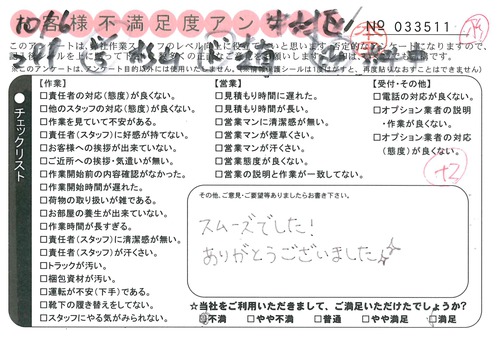 お客様不満足度アン
No 033511
このアンケートは、当社作業スタッフのレベル向上に役立てたいと思います。否定的なアンケートになりますので、
※このアンケートは、アンケート目的以外には使用いたしません。
【作業】
□責任者の対応(態度)が良くない。
□他のスタッフの対応(態度)が良くない。
□作業を見ていて不安がある。
□責任者(スタッフ)に好感が持てない。
□お客様への挨拶が出来ていない。
□ご近所への挨拶・気遣いが無い。
□作業開始前の内容確認がなかった。
□作業開始時間が遅れた。
□荷物の取り扱いが雑である。
□お部屋の養生が出来ていない。
□作業時間が長すぎる。
□責任者(スタッフ)に清潔感が無い。
□責任者(スタッフ)が汗くさい。
□トラックが汚い。
□梱包資材が汚い。
□運転が不安(下手)である。
□靴下の履き替えをしてない。
□スタッフにやる気がみられない。
●チェックリスト
【営業】
□見積もり時間に遅れた。
□見積もり時間が長い。
□営業マンに清潔感が無い。
□営業マンが煙草くさい。
□営業マンが汗くさい。
□営業態度が良くない。
□営業の説明と作業が一致してない。
【受付・その他】
□電話の対応が良くない。
□オプション業者の説明
・作業が良くない。
□オプション業者の対応
(態度)が良くない。
+2
その他、ご意見・ご要望等ありましたらお書き下さい。
スムーズでした!
ありがとうございました☆☆
☆当社をご利用いただきまして、ご満足いただけたでしょうか?
□不満 □やや不満 □普通 □やや満足 □満足